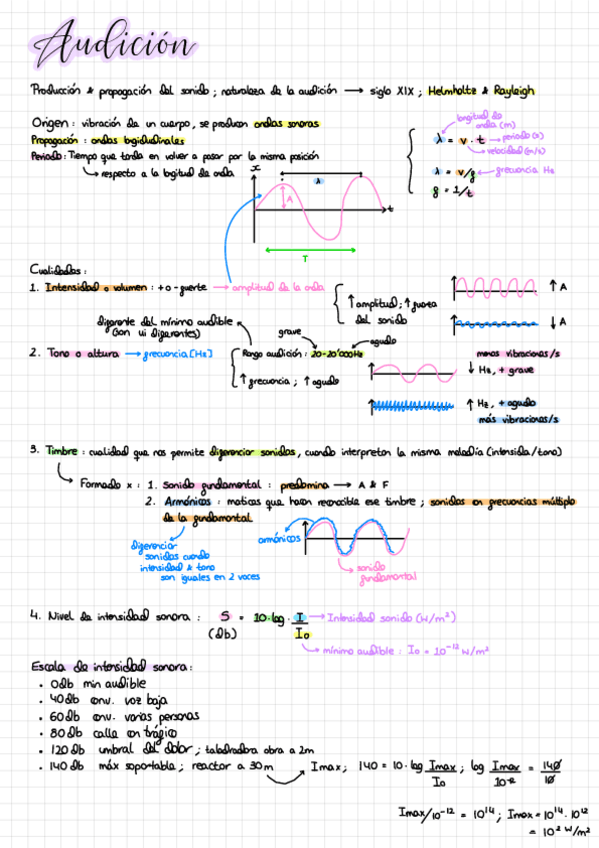 Audición
Producción & propagación del sonido ; naturaleza de la audición → siglo XIX ; Helmholtz & Rayleigh
Origen : vibración de un cuerpo, se producen ondas sonoras
Propagación : ondas longitudinales
Periodo : Tiempo que tarda en volver a pasar por la misma posición
↳ respecto a la longitud de onda
longitud de onda (m)
λ = v · t → periodo (s)
→ velocidad (m/s)
λ = v/f ← frecuencia Hz
f = 1/t
x
λ
A
t
T
Cualidades :
1. Intensidad o volumen : + o - fuerte → amplitud de la onda
↑ amplitud ; ↑ fuerza
del sonido
↑ A
↓ A
diferente del mínimo audible
(son ui diferentes)
grave
agudo
2. Tono o altura → frecuencia [Hz]
Rango audición : 20-20'000Hz
↑ frecuencia ; ↑ agudo
menos vibraciones/s
↓ Hz, + grave
↑ Hz, + agudo
más vibraciones/s
3. Timbre : cualidad que nos permite diferenciar sonidos, cuando interpretan la misma melodía (intensida/tono)
↳ Formado x : 1. Sonido fundamental : predomina → A & F
2. Armónicos : matices que hacen reconocible ese timbre ; sonidos en frecuencias múltiplo
de la fundamental
diferenciar
sonidos cuando
intensidad & tono
son iguales en 2 voces
armónicos
sonido
fundamental
4. Nivel de intensidad sonora : S = 10·log · I/I₀ → Intensidad sonido (W/m²)
(db)
mínimo audible : I₀ = 10⁻¹² W/m²
Escala de intensidad sonora :
• 0db min audible
• 40db conv. voz baja
• 60db conv. varias personas
• 80db calle con tráfico
• 120db umbral del dolor ; taladradora obra a 2m
• 140db máx soportable ; reactor a 30m
Imax ; 140 = 10 · log Imax/I₀ ; log Imax/10⁻¹² = 140/10
Imax/10⁻¹² = 10¹⁴ ; Imax = 10¹⁴ · 10¹²
= 10² W/m²